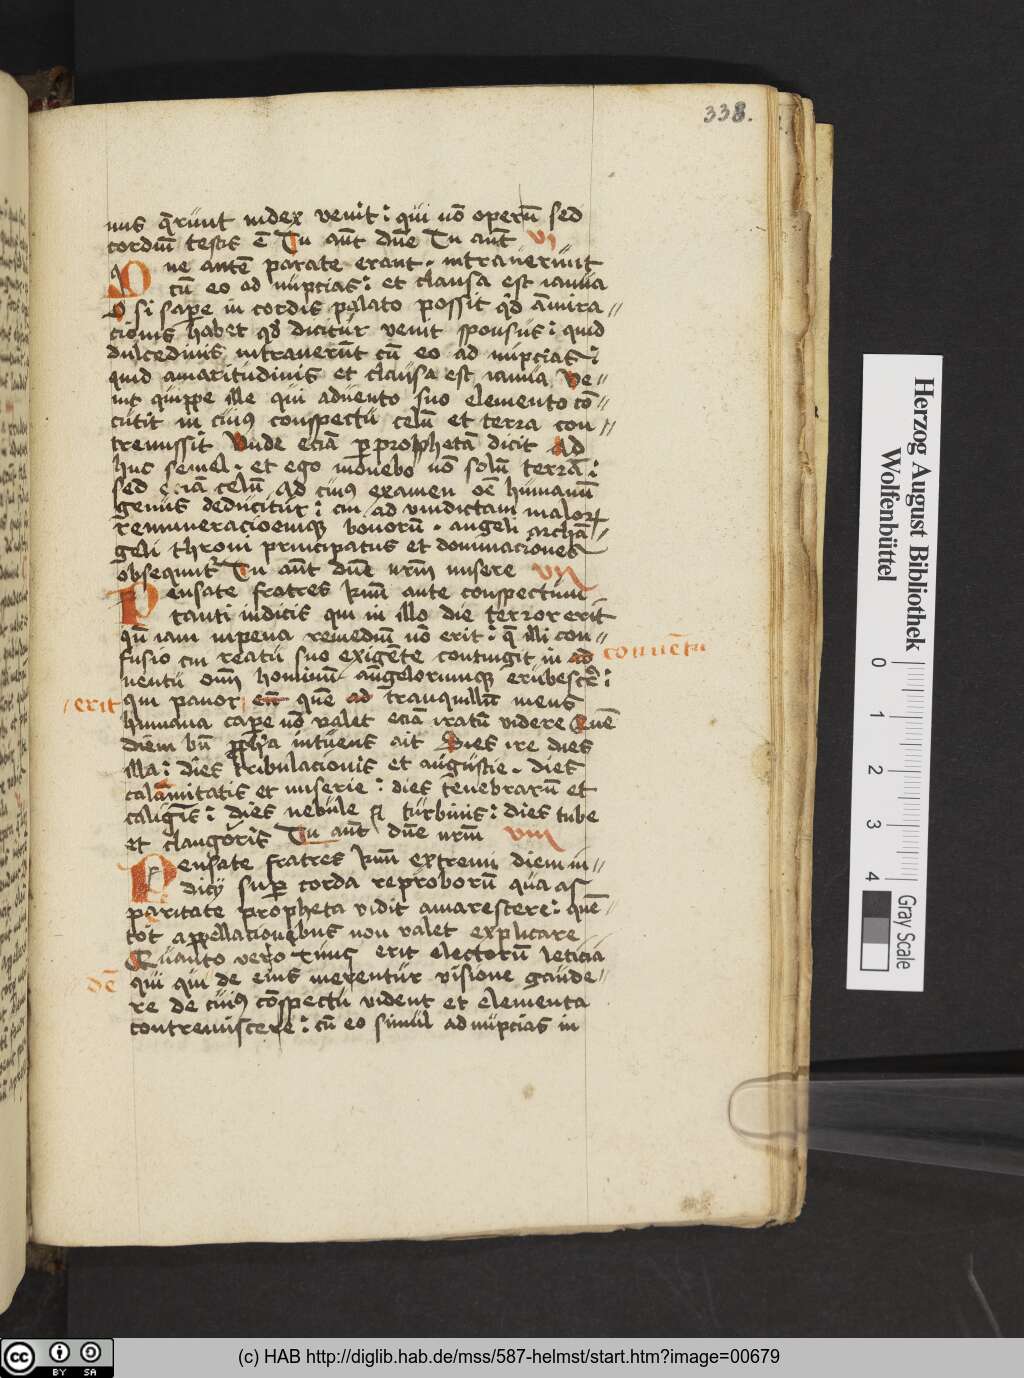 338.
nus q̄runt iudex venit : qui nō operū sed
cordiū testis ē Tu aūt dn̄e Tu aūt vi
Que autē parate erant . intrauerunt
cū eo ad nupcias : et clausa est ianua
O si sape in cordis palato possit qͥd am̄ira //
cionis habet qd̓ dicitur venit sponsus : quid
dulcedinis intrauerūt cū eo ad nupcias :
quid amaritudinis et clausa est ianua Ve=
nit quippe ille qui aduento suo elemento cō=
cutit in cuiꝰ conspectu celū et terra con //
tremissit Unde eciā ꝑ prophetā dicit Ad
huc semel . et ego mouebo nō solū terrā :
sed eciā celū Ad cuiꝰ examen oē humanū
genus deducitur : cui ad vindictam maloꝝ
remuneracioemqꝫ bonorū . angeli archā=
geli throni principatus et dominaciones
obsequnt᷑ Tu aūt dn̄e nrm̄ misere vii
Pensate fratres kmī ante conspectum
tanti iudicis qui in illo die terror erit
qn̄ iam inpena remediū nō erit : q̄ illi con=
fusio cui reatu suo exigēte contingit in ad conuētu
uentu om̄i hominū angelorumqꝫ erubescer̄ :
erit qui pauor eū quē ad tranquillū mens
humana cape nō valet eciā iratū videre Quē
diem bn̄ ꝓpha intuens ait Dies ire dies
illa : dies tribulacionis et augustie . dies
calamitatis et miserie : dies tenebrarū et
caliginis : dies nebule et turbinis : dies tube
et clangoris Tu aūt dn̄e nrm̄ viii
Pensate fratres kmī extremi diem in=
dicij suꝑ corda reproborū qua as
paritate propheta vidit amarescere : quē
tot appellacionebus non valet explicare
Quanto vero tunc erit electorū leticia
dē qui qui de eius merentur visione gaude=
re de cuiꝰ cōspectu vident et elementa
contremiscere : cū eo simul ad nupcias in
Herzog August Bibliothek
Wolfenbüttel
0 1 2 3 4
Gray Scale
cc BY SA
(c) HAB http://diglib.hab.de/mss/587-helmst/start.htm?image=00679